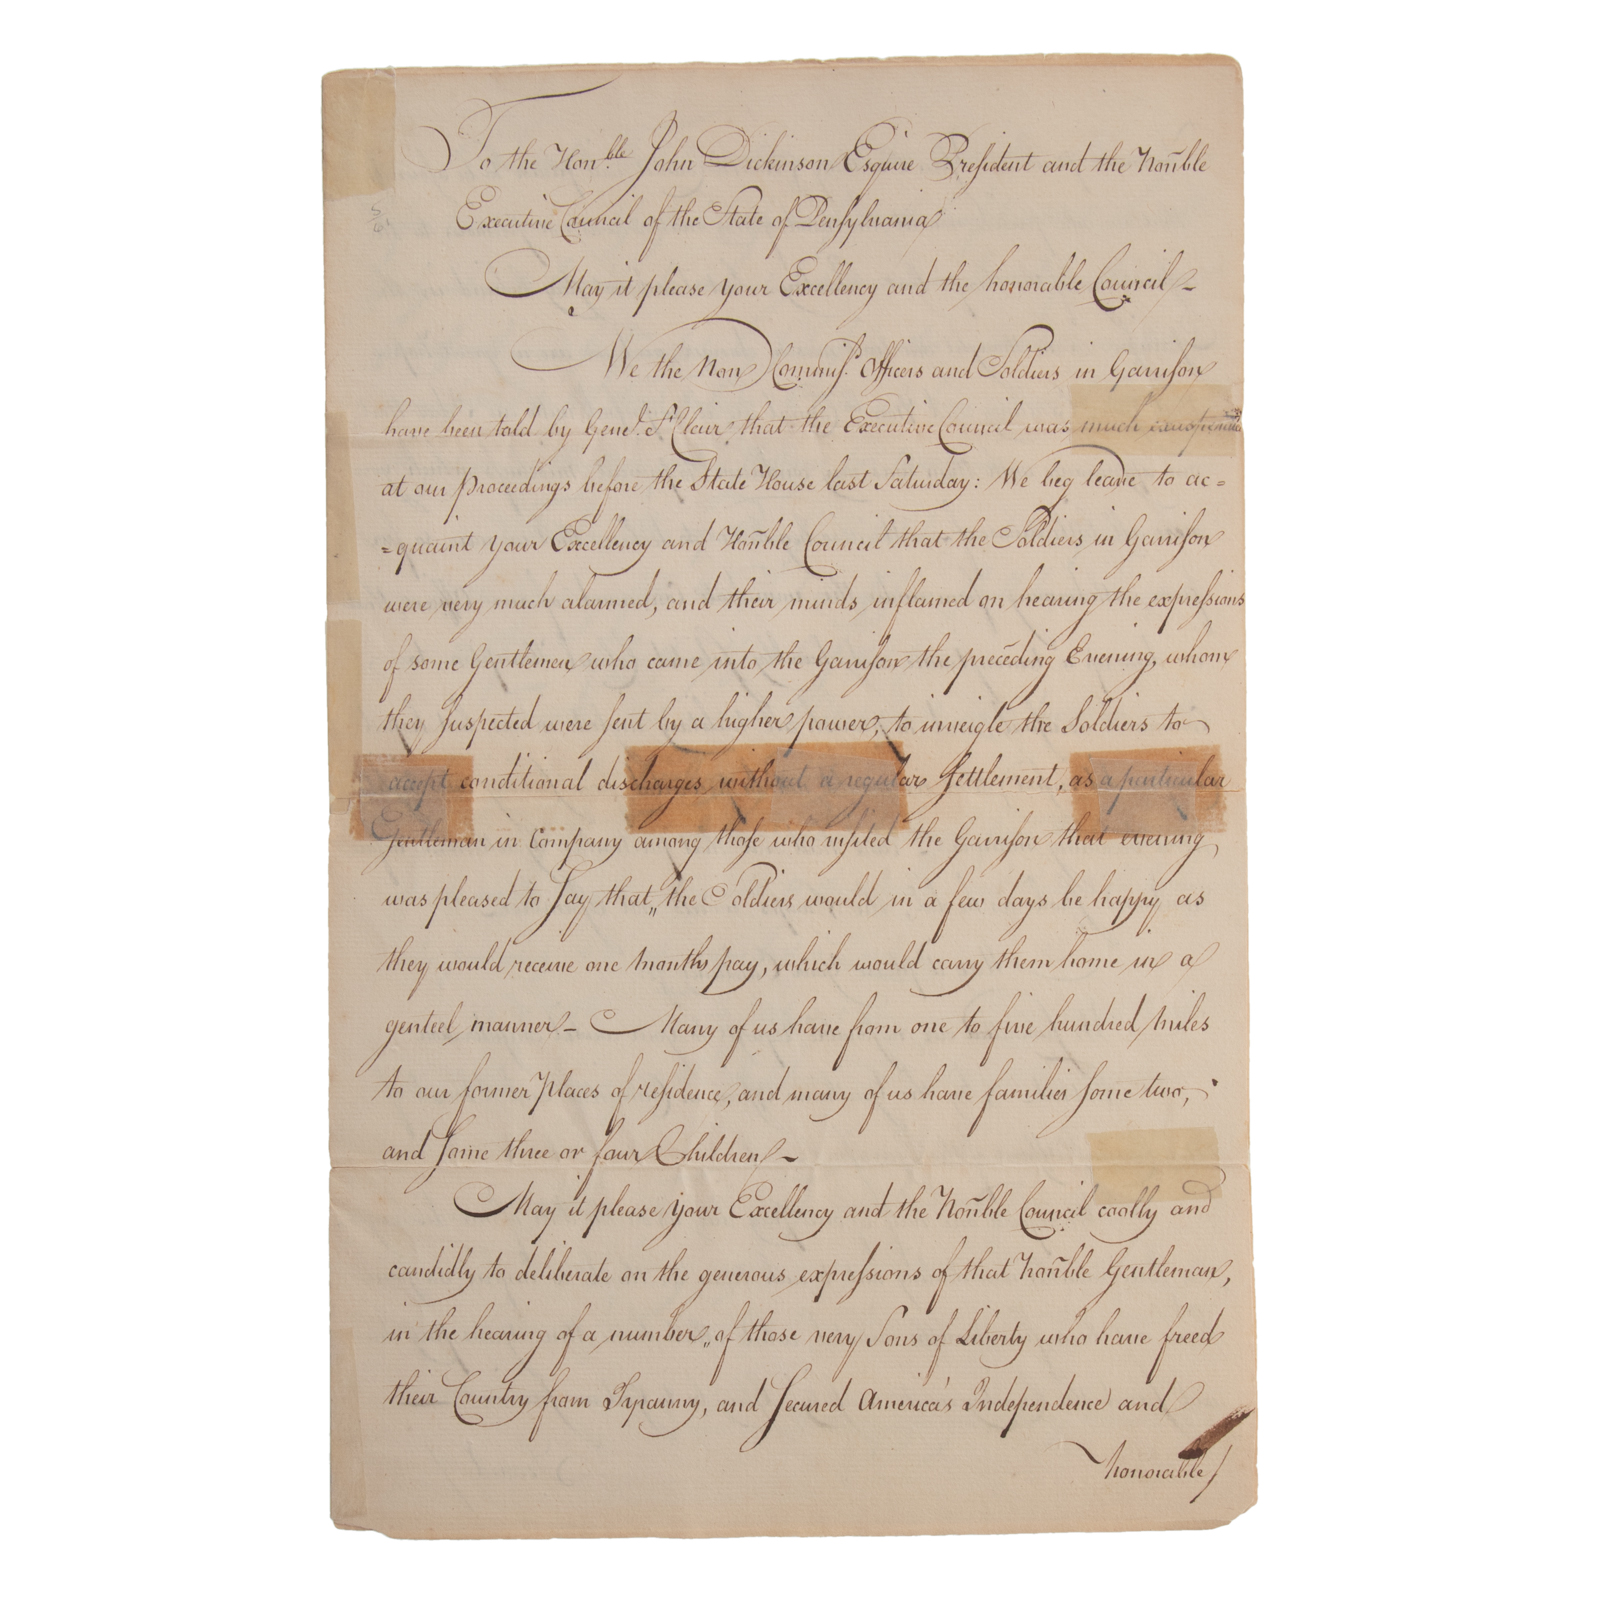 To the Hon.ble John Dickinson Esquire President and the Hon̄ble
Executive Council of the State of Pensylvania
May it please your Excellency and the honorable Council –
We the Non Commiss.d Officers and Soldiers in Garrison
have been told by Gene.l S.t Clair that the Executive Council was much
at our proceedings before the State House last Saturday: We beg leave to ac=
=quaint your Excellency and Hon̄ble Council that the Soldiers in Garrison
were very much alarmed, and their minds inflamed on hearing the expressions
of some Gentlemen who came into the Garrison the preceding Evening, whom
they suspected were sent by a higher power, to inveigle the Soldiers to
accept conditional discharges without a regular settlement, as a particular
Gentleman in Company among those who visited the Garrison that evening
was pleased to say that „the Soldiers would in a few days be happy as
they would receive one months pay, which would carry them home in a
genteel manner – Many of us have from one to five hundred miles
to our former places of residence, and many of us have families some two,
and some three or four Children –
May it please your Excellency and the Hon̄ble Council coolly and
candidly to deliberate on the generous expressions of that hon̄ble Gentleman,
in the hearing of a number „of those very Sons of Liberty who have freed
their Country from Tyranny, and secured America's Independence and
honorable